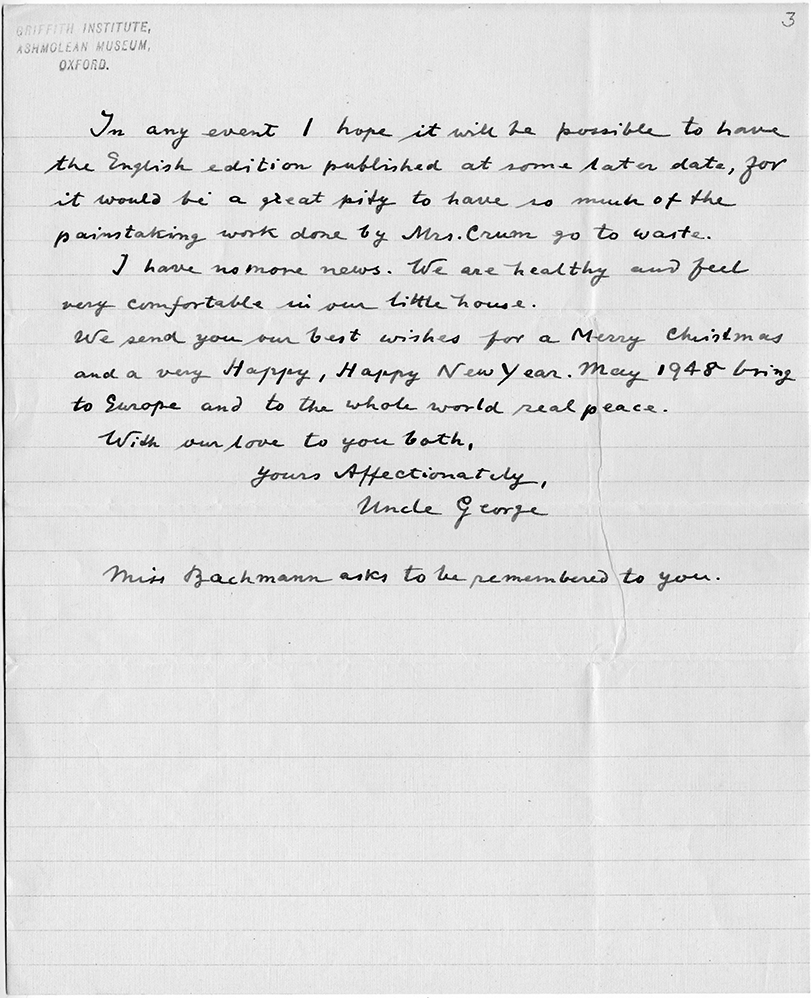 GRIFFITH INSTITUTE,
ASHMOLEAN MUSEUM,
OXFORD.
3
In any event I hope it will be possible to have
the English edition published at some later date, for
it would be a great pity to have so much of the
painstaking work done by Mrs. Crum go to waste.
I have no more news. We are healthy and feel
very comfortable in our little house.
We send you our best wishes for a Merry Christmas
and a very Happy, Happy New Year. May 1948 bring
to Europe and to the whole world real peace.
With our love to you both,
Yours Affectionately,
Uncle George
Miss Bachmann asks to be remembered to you.